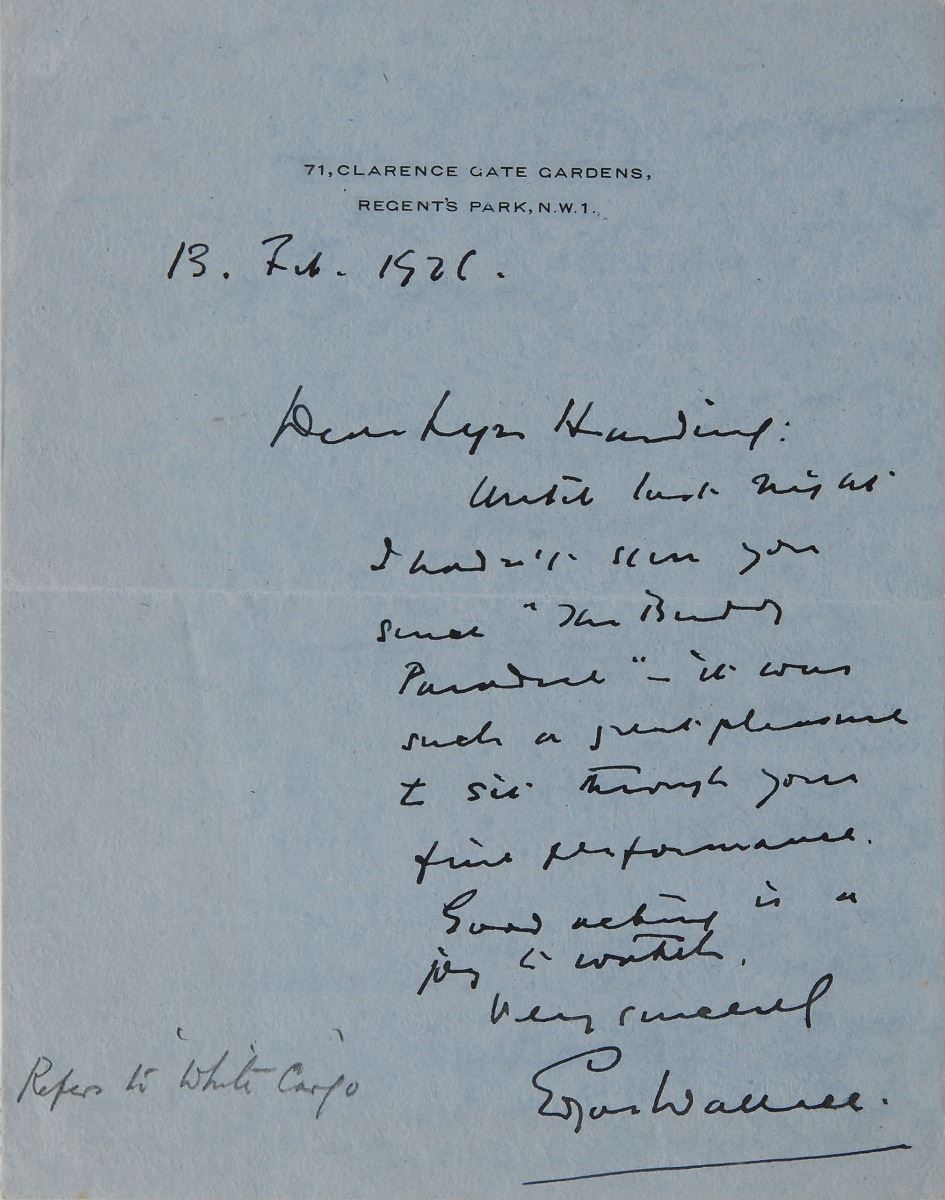 71, CLARENCE GATE GARDENS,
REGENT'S PARK, N.W.1.
13. Feb. 1926.
Dear Lyn Harding:
Until last night
I hadn't seen you
since "The
Paradise" – it was
such a great pleasure
to sit through your
fine performance.
Good acting is a
joy to watch.
Very sincerely
Edgar Wallace.
Refers to 'White Cargo'